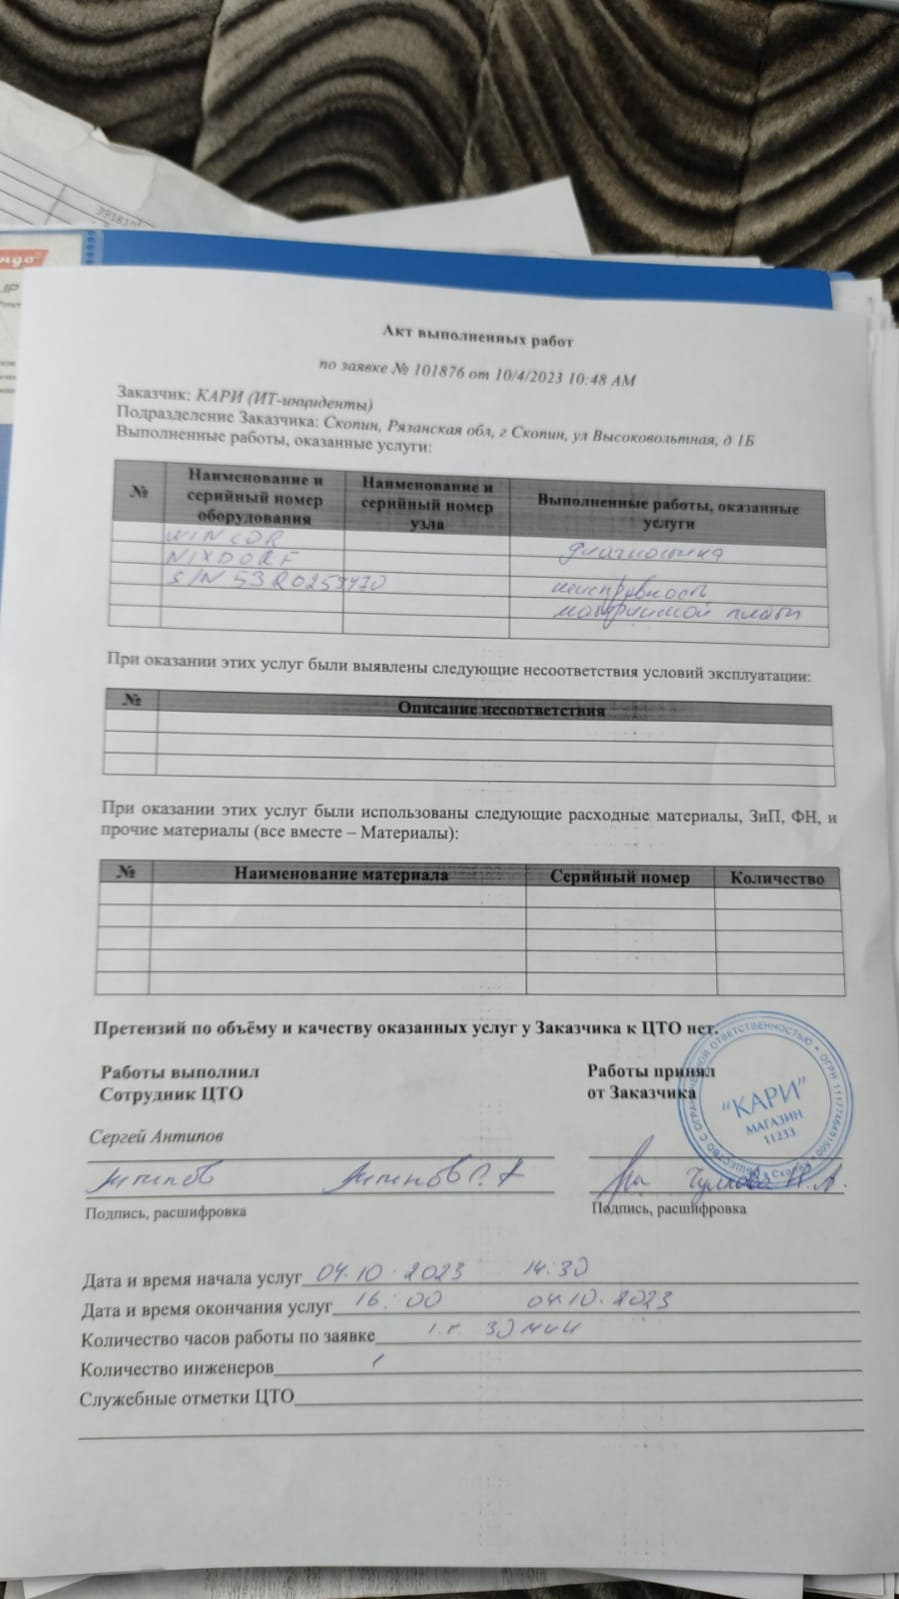 Акт выполненных работ
по заявке № 101876 от 10/4/2023 10:48 AM
Заказчик: КАРИ (ИТ-инциденты)
Подразделение Заказчика: Скопин, Рязанская обл, г Скопин, ул Высоковольтная, д 1Б
Выполненные работы, оказанные услуги:
№ Наименование и серийный номер оборудования Наименование и серийный номер узла Выполненные работы, оказанные услуги
WINCOR диагностика
NIXDORF
S/N 5320259470 неисправность
материнской платы
При оказании этих услуг были выявлены следующие несоответствия условий эксплуатации:
№ Описание несоответствия
При оказании этих услуг были использованы следующие расходные материалы, ЗиП, ФН, и
прочие материалы (все вместе – Материалы):
№ Наименование материала Серийный номер Количество
Претензий по объёму и качеству оказанных услуг у Заказчика к ЦТО нет.
Работы выполнил Работы принял
Сотрудник ЦТО от Заказчика
"КАРИ"
МАГАЗИН
11233
Сергей Антипов
Антипов Антипов С.А Чулкова Н.А.
Подпись, расшифровка Подпись, расшифровка
Дата и время начала услуг 04.10.2023 14:30
Дата и время окончания услуг 16:00 04.10.2023
Количество часов работы по заявке 1 г. 30 мин
Количество инженеров 1
Служебные отметки ЦТО